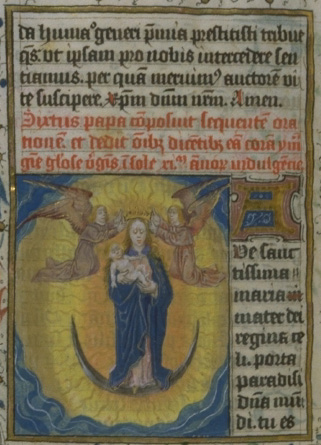 da humaº generi p̄mia prestitisti tribue
q̄s. vt ipsam pro nobis intercedere sen
tiamus. per quā meruimꝰ auctorē vi
te suscipere. xp̄m dūm nr̄m. Amen.
Sixtus papa ꝯposuit sequentē ora
tionē. et dedit oībꝫ dicētibꝫ eā corā ym̄
gīe glose v̄gīs. ī sole xi.ᵐ annoꝝ indulgētie
Ue sanc
tissima
maria
mater dei
regina ce
li. porta
paradisi
dn̄a mū
di. tu es